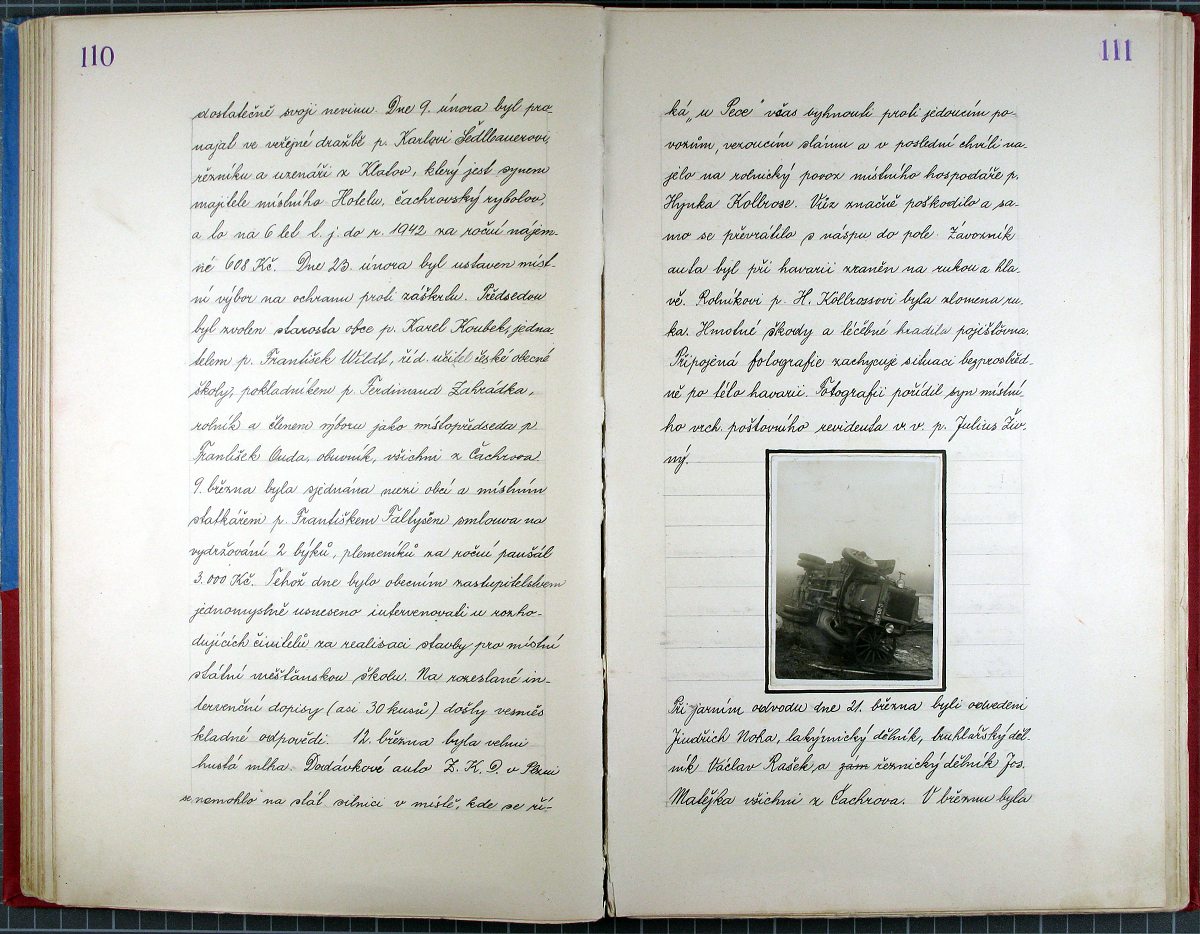 110
dostatečně svoji nevinu. Dne 9. února byl pro-
najat ve veřejné dražbě p. Karlovi Sedlbauerovi,
řezníku a uzenáři z Klatov, který jest synem
majitele místního Hotelu, čachrovský rybolov,
a to na 6 let t. j. do r. 1942 za roční nájem-
né 608 Kč. Dne 23. února byl ustaven míst-
ní výbor na ochranu proti záškrtu. Předsedou
byl zvolen starosta obce p. Karel Koubek, jedna-
telem p. František Wildt, říd. učitel české obecné
školy, pokladníkem p. Ferdinand Zahrádka,
rolník a členem výboru jako místopředseda p.
František Duda, obuvník, všichni z Čachrova
9. března byla sjednána mezi obcí a místním
statkářem p. Františkem Faltyšem smlouva na
vydržování 2 býků, plemeníků za roční paušál
3.000 Kč. Téhož dne bylo obecním zastupitelstvem
jednomyslně usneseno intervenovati u rozho-
dujících činitelů za realisaci stavby pro místní
státní měšťanskou školu. Na rozeslané in-
tervenční dopisy (asi 30 kusů) došly vesměs
kladné odpovědi. 12. března byla velmi
hustá mlha. Dodávkové auto Z. K. D. v Plzni
se nemohlo na stát. silnici v místě, kde se ří-
111
ká „u Pece" včas vyhnouti proti jedoucím po-
vozům, vezoucím slámu a v poslední chvíli na-
jelo na rolnický povoz místního hospodáře p.
Hynka Kollrose. Vůz značně poškodilo a sa-
mo se převrátilo s náspu do pole. Závozník
auta byl při havarii zraněn na rukou a hla-
vě. Rolníkovi p. H. Kollrossovi byla zlomena ru-
ka. Hmotné škody a léčebné hradila pojišťovna.
Připojená fotografie zachycuje situaci bezprostřed-
ně po této havarii. Fotografii pořídil syn místní-
ho vrch. poštovního revidenta v. v. p. Julius Živ-
ný.
Při jarním odvodu dne 21. března byli odvedeni
Jindřich Noha, lakýrnický dělník, truhlářský děl-
ník Václav Rašek, a zám řeznický dělník Jos.
Matějka všichni z Čachrova. V březnu byla